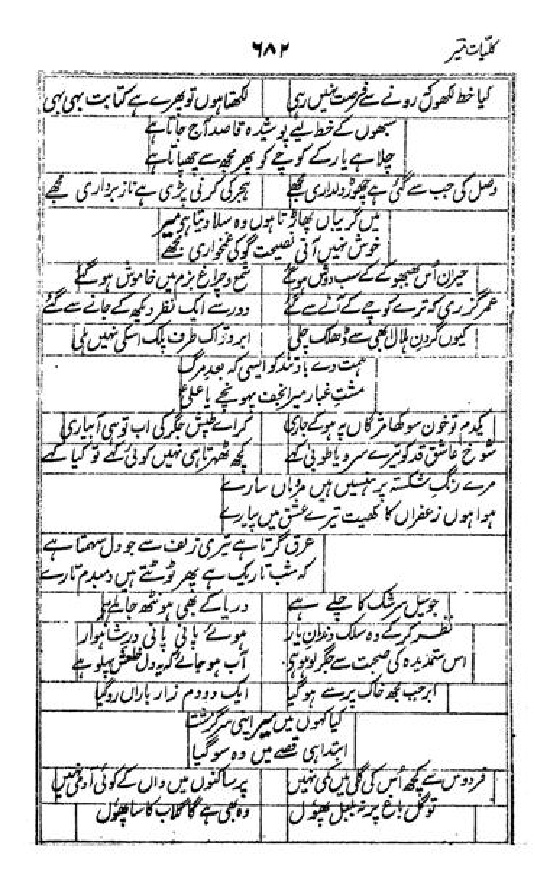 کلیات میر
۶۸۲
کیا خط لکھوں کہ رونے سے فرصت نہیں رہی لکھتا ہوں تو پھرے ہے کتابت بہی بہی
سبھوں کے خط لیے پوشیدہ قاصد آج جاتا ہے
چلا ہے یار کے کوچے کو پھر مجھ سے چھپاتا ہے
وصل کی جب سے گئی ہے چھوڑ دلداری مجھے ہجر کی کرنی پڑی ہے ناز برداری مجھے
میں گریباں پھاڑتا ہوں وہ سلا دیتا ہے میر
خوش نہیں آتی نصیحت گو کی غمخواری مجھے
حیران اُس بھبھوکے کے سب دوش ہو گئے شمع و چراغ بزم میں خاموش ہو گئے
عمر گزری کہ ترے کوچے کے آنے سے گئے دور سے ایک نظر دیکھ کے جانے سے گئے
کیوں گردن ہلال ابھی سے ڈھلک چلی ابرو نزک طرف پلک اسکی نہیں ہلی
ہمت دے باد تند کو ایسی کہ بعد مرگ
مشت غبار میر نجف پہونچے یا علی
یکدم تو خون سوکھا مژگاں پہ ہو کے جاری کر اے طپش جگر کی اب تو ہی آبیاری
شوخ عاشق قد کو تیرے سرو یا طوبیٰ کہے کچھ ٹھہرتا ہی نہیں کوئی کہے تو کیا کہے
مرے رنگ شکستہ پر ہنسے ہیں مرداں سارے
ہوا ہوں زعفراں کا کھیت تیرے عشق میں پیارے
عرق گرتا ہے تیری زلف سے جو دل سہمتا ہے
کہ شب تاریک ہے پھر ٹوٹتے ہیں دمبدم تارے
جو سیل سرشک کا چلے ہے دریا کے بھی ہونٹھ چاٹے ہے
نظر کر کے وہ سلک دندان یار ہوئے پانی پانی در شاہوار
اس ستمدیدہ کی صحبت سے جگر لوہو ہی آب ہو جائے کہ یہ دل خلش پہلو ہے
ابر جب مجھ خاک پر سے ہو گیا ایک دو دم زار باراں رو گیا
کیا کہوں میں میر اپنی سرگزشت
ابتدا ہی قصے میں وہ سو گیا
فردوس سے کچھ اُس کی گلی میں کمی نہیں پر ساکنوں میں واں کے کوئی آدمی نہیں
تو گل باغ پر نہ بلبل پھول وہ بھی ہے گا گلاب کا سا پھول